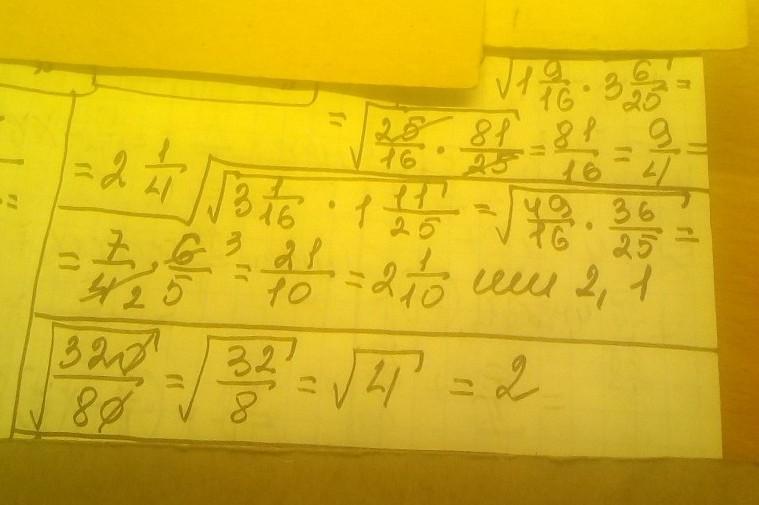 √1 9/16 · 3 6/25 =
= √25/16 · 81/25 = 81/16 = 9/4 =
= 2 1/4
√3 1/16 · 1 11/25 = √49/16 · 36/25 =
= 7/4 2 · 6/5 3 = 21/10 = 2 1/10 или 2,1
√320/80 = √32/8 = √4 = 2